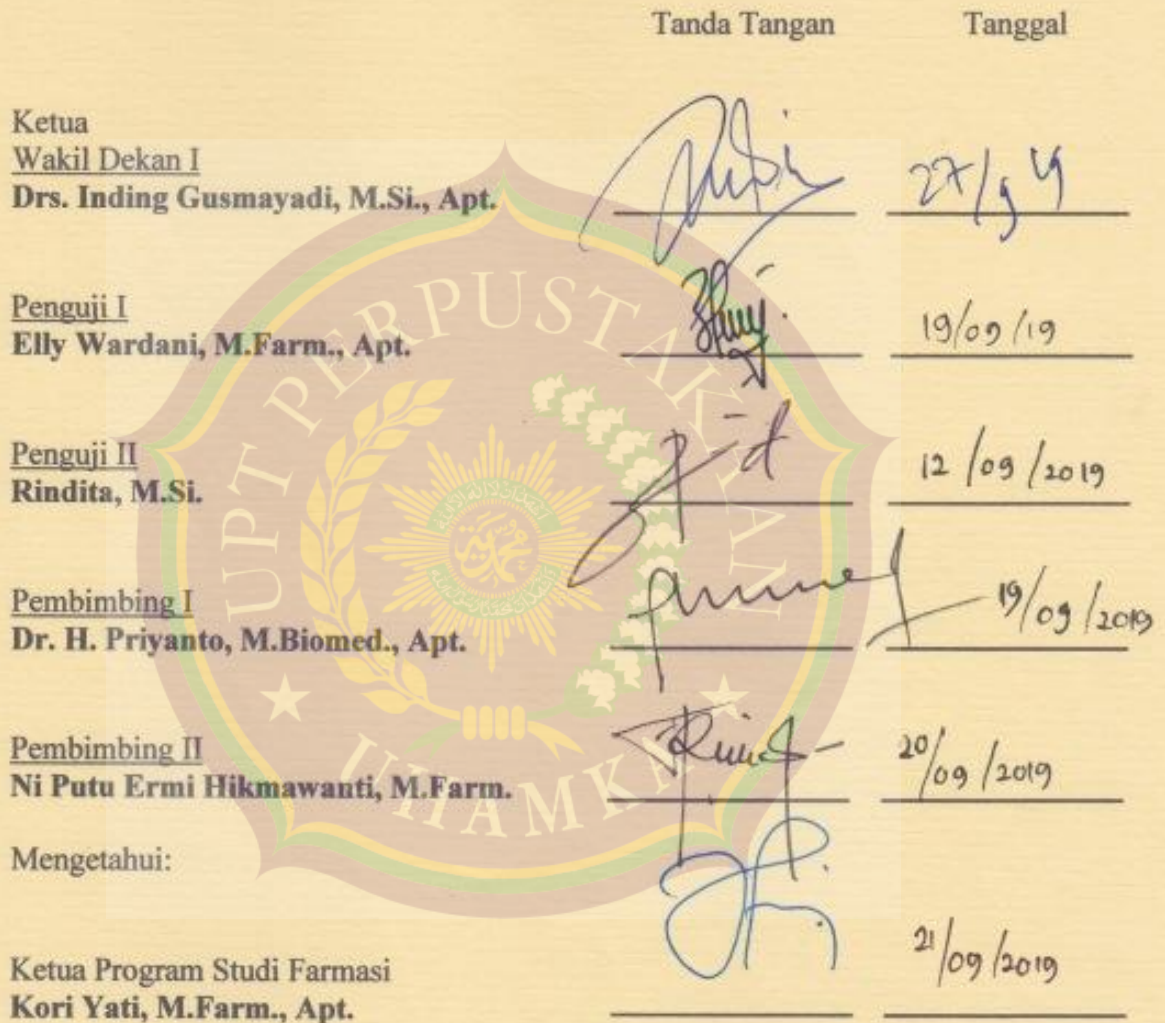 Tanda Tangan Tanggal
Ketua
Wakil Dekan I
Drs. Inding Gusmayadi, M.Si., Apt. 27/9 19
Penguji I
Elly Wardani, M.Farm., Apt. 19/09/19
Penguji II
Rindita, M.Si. 12/09/2019
Pembimbing I
Dr. H. Priyanto, M.Biomed., Apt. 19/09/2019
Pembimbing II
Ni Putu Ermi Hikmawanti, M.Farm. 20/09/2019
Mengetahui:
Ketua Program Studi Farmasi
Kori Yati, M.Farm., Apt. 21/09/2019
UPT PERPUSTAKAAN
UHAMKA